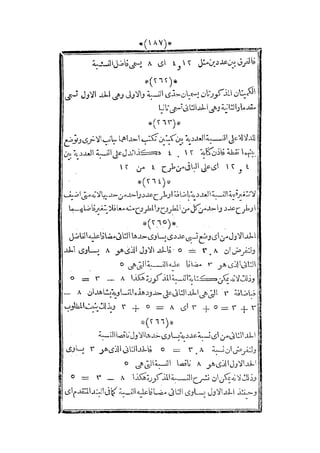 *(١٨٧)*
فالفرق بين عددين مثل ١٢ و ٤ اى ٨ يسمى فاضل النسبة
*(٢٦٢)*
الكميتان المذكورتان يسميان حدى النسبة والاولى وهى الحد الاول تسمى
مقدما والثانية وهى الحد الثانى تسمى تاليا
*(٢٦٣)*
للدلالة على النسبة العددية بين كميتين تكتب احداهما بجانب الاخرى وتوضع
بينهما نقطة فاذن كتابة ١٢ . ٤ هكذا تدل على النسبة العددية بين
٤ و ١٢ اى على الباقى من طرح ٤ من ١٢
*(٢٦٤)*
لا تتغير قيمة النسبة العددية باضافة او طرح عدد واحد من حديها لانه متى اضيف
او طرح عدد واحد من كل من المطروح والمطروح منه معا فلا يتغير فاضلهما
*(٢٦٥)*
الحد الاول من اى نسبة عددية يساوى حدها الثانى مضافا عليه الفاضل
ولنفرض ان ٨ . ٣ = ٥ فالحد الاول الذى هو ٨ يساوى الحد
الثانى الذى هو ٣ مضافا عليه النسبة التى هى ٥
وذلك لانه يمكن كتابة النسبة المذكورة هكذا ٨ — ٣ = ٥
فباضافة ٣ التى هى الحد الثانى على حدود هذه المتساوية يشاهد ان ٨ —
٣ + ٣ = ٥ + ٣ اى ٨ = ٥ + ٣ وبذلك يثبت المطلوب
*(٢٦٦)*
الحد الثانى من اى نسبة عددية يساوى حدها الاول ناقصا النسبة
ولنفرض ان نسبة ٨ . ٣ = ٥ فالحد الثانى الذى هو ٣ يساوى
الحد الاول الذى هو ٨ ناقصا النسبة التى هى ٥
وذلك لانه يمكن ان تشرح النسبة المذكورة هكذا ٨ — ٣ = ٥
وحينئذ الحد الاول يساوى الثانى مضافا عليه النسبة كما فى البند المتقدم اى